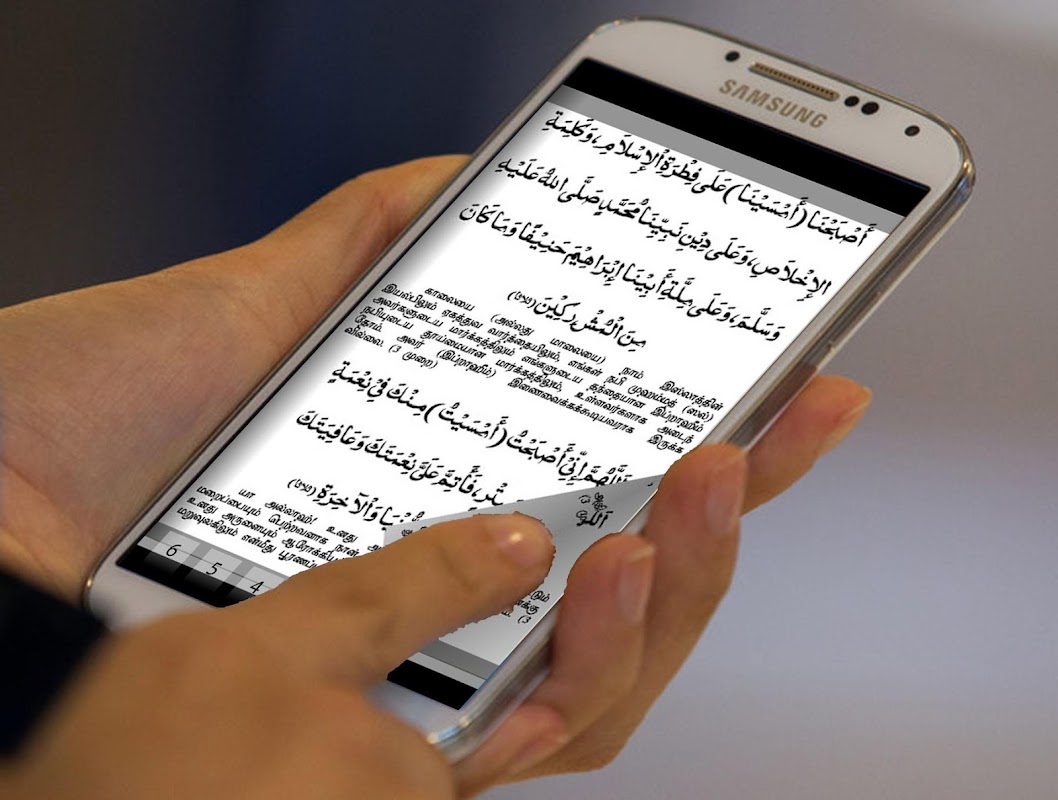 SAMSUNG
أَصْبَحْنَا (أَمْسَيْنَا) عَلَى فِطْرَةِ الْإِسْلَامِ، وَكَلِمَةِ
الإِخْلَاصِ، وَعَلَى دِيْنِ نَبِيِّنَا مُحَمَّدٍ صَلَّى اللهُ عَلَيْهِ
وَسَلَّمَ، وَعَلَى مِلَّةِ أَبِيْنَا إِبْرَاهِيْمَ حَنِيْفًا وَمَا كَانَ
مِنَ الْمُشْرِكِيْنَ
காலையை (அல்லது மாலையை) நாம் இஸ்லாத்தின்
இயல்பிலும் ஏகத்துவ வார்த்தையிலும், எங்கள் நபி முஹம்மத் (ஸல்)
அவர்களுடைய மார்க்கத்திலும் எங்களுடைய தந்தையான இப்ராஹீம்
நபியுடைய தூய்மையான மார்க்கத்திலும், உள்ளவர்களாக அடைந்
தோம். அவர் (இப்ராஹீம்) இணைவைக்கக்கூடியவராக இருக்க
வில்லை. (3 முறை)
اَللَّهُمَّ إِنِّيْ أَصْبَحْتُ (أَمْسَيْتُ) مِنْكَ فِيْ نِعْمَةٍ
فَأَتِمَّ عَلَيَّ نِعْمَتَكَ وَعَافِيَتَكَ
وَالْآخِرَةِ
யா அல்லாஹ்! உனது
மறைப்பையும் பெற்றவனாக நான்
உனது அருளையும்
மறுவுலகிலும் என்மீது
6 5 4